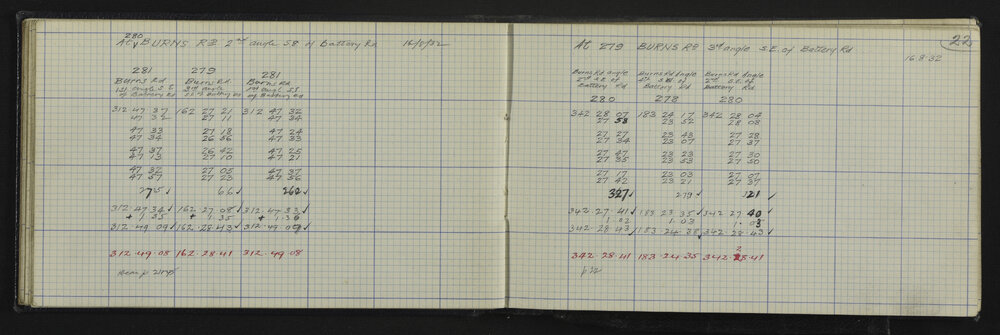 280
At BURNS RD 2nd angle S.E. of Battery Rd 16/8/32
281 279 281
Burns Rd Burns Rd. Burns Rd
1st angle S.E. 3rd angle 1st angle S.E.
of Battery Rd S.E. of Battery Rd of Battery Rd
312 47 37 162 27 21 312 47 32
47 32 27 11 47 34
47 33 27 18 47 24
47 34 26 56 47 33
47 37 26 42 47 25
47 13 27 10 47 21
47 32 27 05 47 37
47 57 27 23 47 56
275 ✓ 66 ✓ 262 ✓
312.47.34 ✓ 162.27.08 ✓ 312.47.33 ✓
+ 1.35 + 1.35 + 1.36
312.49.09 ✓ 162.28.43 ✓ 312.49.09 ✓
312.49.08 162.28.41 312.49.08
22
At 279 BURNS RD 3rd angle S.E. of Battery Rd
16.8.32
Burns Rd angle Burns Rd Angle Burns Rd Angle
2nd S.E. of 4th S.E. of 2nd S.E. of
Battery Rd Battery Rd Battery Rd
280 278 280
342 28 07 183 24 17 342 28 04
27 53 23 52 28 08
27 27 23 43 27 28
27 34 23 07 27 37
27 47 23 23 27 30
27 35 23 53 27 50
27 17 23 03 27 07
27 42 23 21 27 37
327 ✓ 279 ✓ 321 ✓
342.27.41 ✓ 183.23.35 ✓ 342.27.40
1.02 1.03 1.03
342.28.43 ✓ 183.24.38 ✓ 342.28.43 ✓
342.28.41 183.24.35 342.28.41